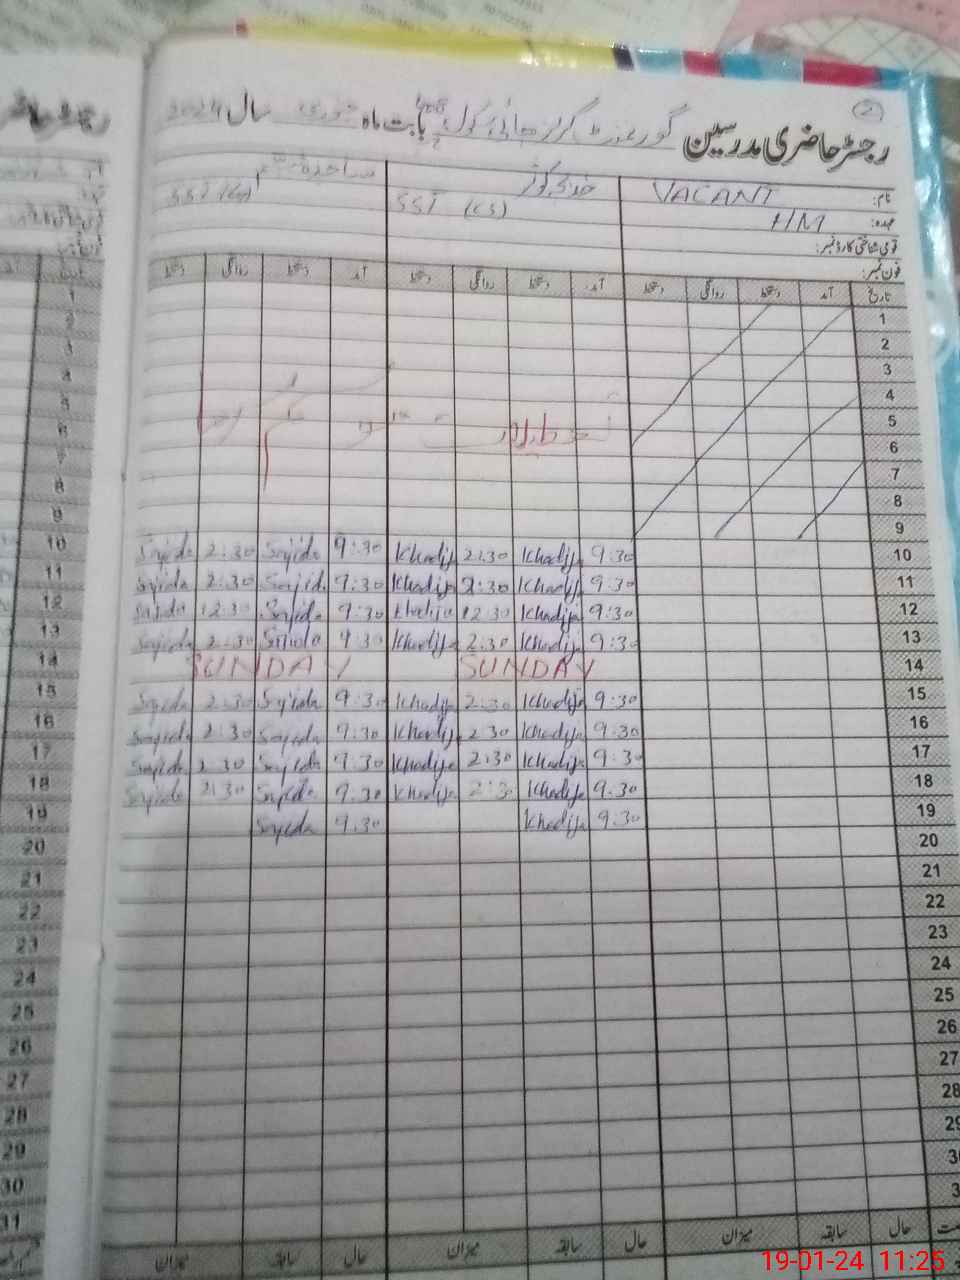 2
رجسٹر حاضری مدرسین گورنمنٹ گرلز ہائی سکول بابت ماہ جنوری سال 2024
نام: VACANT خدیجہ کوثر ساجدہ
عہدہ: H/M SST (CS) SST
قومی شناختی کارڈ نمبر:
فون نمبر:
تاریخ آمد دستخط روانگی دستخط آمد دستخط روانگی دستخط آمد دستخط روانگی دستخط
1
2
3
4
5
6
7
8
9
Sajida 2:30 Sajida 9:30 Khadija 2:30 Khadija 9:30 10
Sajida 2:30 Sajida 9:30 Khadija 2:30 Khadija 9:30 11
Sajida 12:30 Sajida 9:30 Khadija 12:30 Khadija 9:30 12
Sajida 2:30 Sajida 9:30 Khadija 2:30 Khadija 9:30 13
SUNDAY SUNDAY 14
Sajida 2:30 Sajida 9:30 Khadija 2:30 Khadija 9:30 15
Sajida 2:30 Sajida 9:30 Khadija 2:30 Khadija 9:30 16
Sajida 2:30 Sajida 9:30 Khadija 2:30 Khadija 9:30 17
Sajida 2:30 Sajida 9:30 Khadija 2:30 Khadija 9:30 18
Sajida 9:30 Khadija 9:30 19
20
21
22
23
24
25
26
27
28
29
30
حال سابقہ میزان حال سابقہ میزان حال سابقہ میزان
19-01-24 11:25